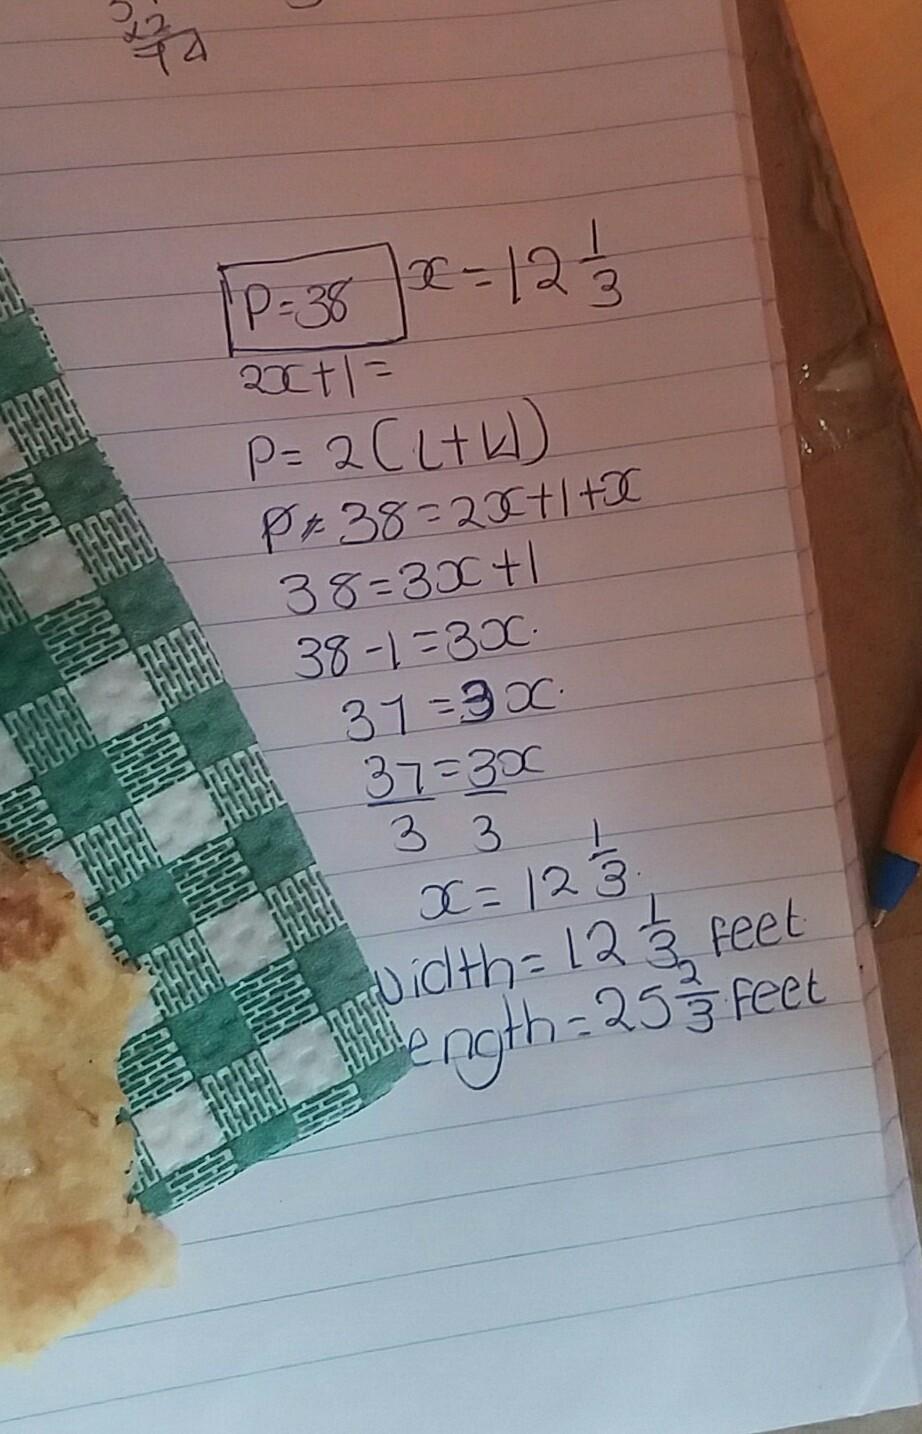 22
74
P=38 x=12 1/3
2x+1=
P=2(L+W)
38=2x+1+x
38=3x+1
38-1=3x.
37=3x.
37=3x
3 3
x=12 1/3.
width=12 1/3 feet.
ength=25 2/3 feet